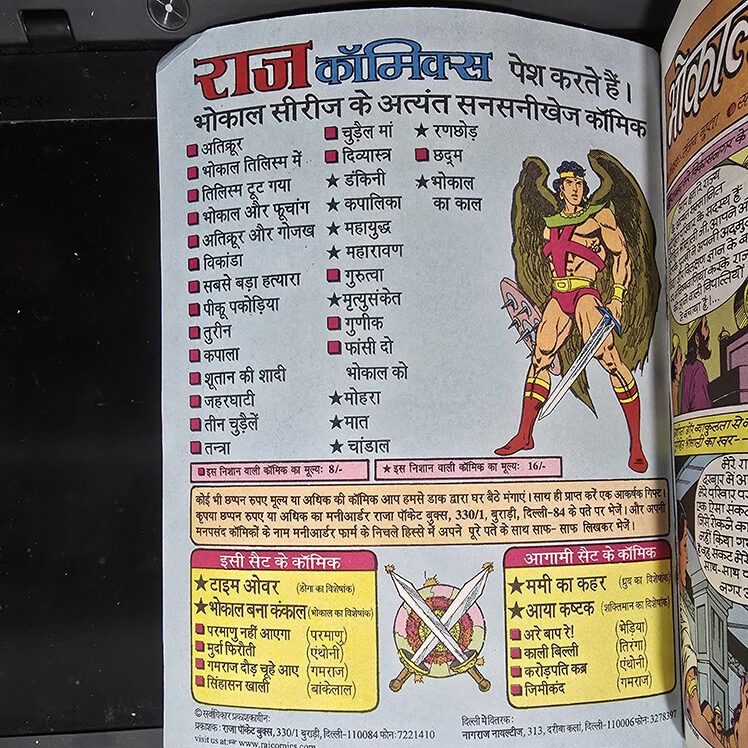 राज कॉमिक्स पेश करते हैं।
भोकाल सीरीज के अत्यंत सनसनीखेज कॉमिक
अतिक्रूर
भोकाल तिलिस्म में
तिलिस्म टूट गया
भोकाल और फूचांग
अतिक्रूर और गोजख
विकांडा
सबसे बड़ा हत्यारा
पीकू पकोड़िया
तुरीन
कपाला
शूतान की शादी
जहरघाटी
तीन चुड़ैलें
तन्त्रा
चुड़ैल मां
दिव्यास्त्र
★ डंकिनी
★ कपालिका
★ महायुद्ध
★ महारावण
गुरुत्वा
★ मृत्युसंकेत
गुणीक
फांसी दो
भोकाल को
★ मोहरा
★ मात
★ चांडाल
★ रणछोड़
छद्‌म
★ भोकाल
का काल
इस निशान वाली कॉमिक का मूल्य: 8/-
★ इस निशान वाली कॉमिक का मूल्य: 16/-
कोई भी छप्पन रुपए मूल्य या अधिक की कॉमिक आप हमसे डाक द्वारा घर बैठे मंगाएं। साथ ही प्राप्त करें एक आकर्षक गिफ्ट।
कृपया छप्पन रुपए या अधिक का मनीआर्डर राजा पॉकेट बुक्स, 330/1, बुराड़ी, दिल्ली-84 के पते पर भेजें। और अपनी
मनपसंद कॉमिक्स के नाम मनीआर्डर फार्म के निचले हिस्से में अपने पूरे पते के साथ साफ- साफ लिखकर भेजें।
इसी सैट के कॉमिक
★ टाइम ओवर (डोगा का विशेषांक)
★ भोकाल बना कंकाल (भोकाल का विशेषांक)
परमाणु नहीं आएगा (परमाणु)
मुर्दा फिरौती (एंथोनी)
गमराज दौड़ चूहे आए (गमराज)
सिंहासन खाली (बांकेलाल)
आगामी सैट के कॉमिक
★ ममी का कहर (ध्रुव का विशेषांक
★ आया कष्टक (शक्तिमान का विशेषांक
अरे बाप रे! (भेड़िया)
काली बिल्ली (तिरंगा)
करोड़पति कब्र (एंथोनी)
जिमीकंद (गमराज)
© सर्वाधिकार प्रकाशकाधीन:
प्रकाशक: राजा पॉकेट बुक्स, 330/1 बुराड़ी, दिल्ली-110084 फोन: 7221410
visit us at: www.rajcomics.com
दिल्ली में वितरक:
नागराज नावल्टीज, 313, दरीबा कलां, दिल्ली-110006 फोन: 3278397
भोकाल